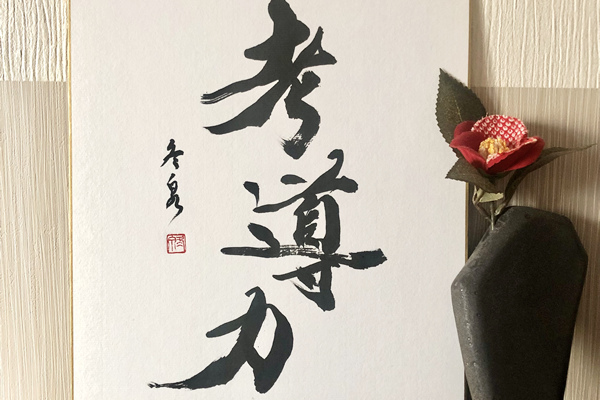 考導力
冬泉